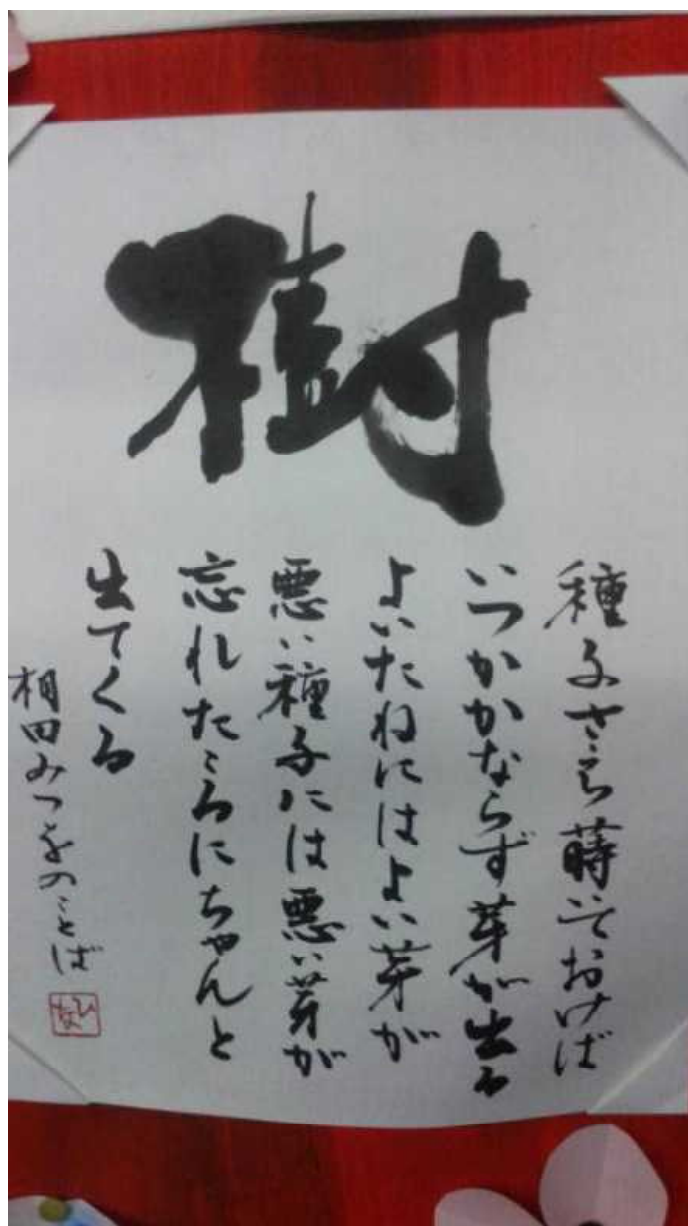 樹
種子さえ蒔いておけば
いつかかならず芽が出る
よいたねにはよい芽が
悪い種子には悪い芽が
忘れたころにちゃんと
出てくる
相田みつをのことば
ひな